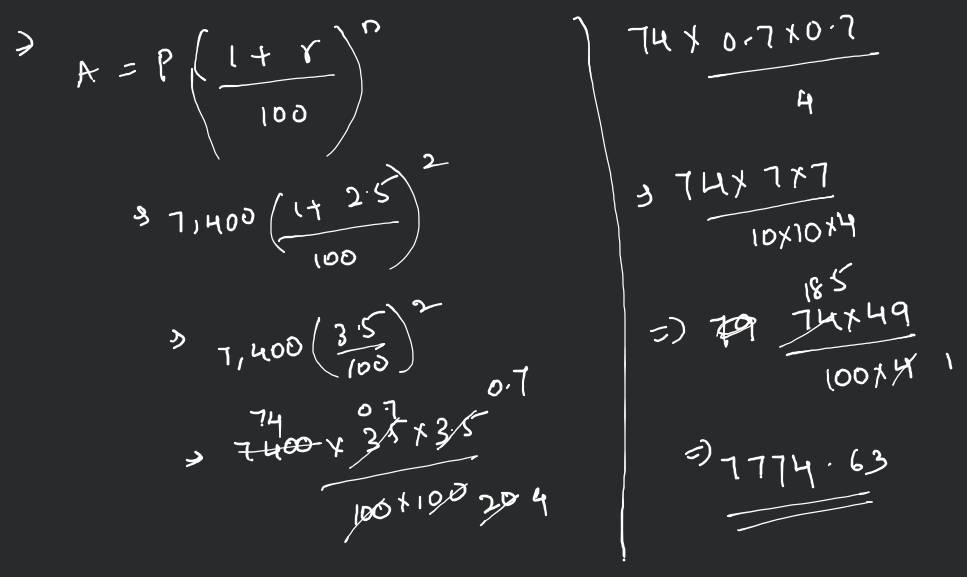 ⇒ A = P ( (1 + r) / 100 )^n
⇒ 7,400 ( (1 + 2.5) / 100 )^2
⇒ 7,400 ( 3.5 / 100 )^2
74 0.7 0.7
⇒ 7400 × 3.5 × 3.5
100 × 100 20 4
74 × 0.7 × 0.7
4
⇒ 74 × 7 × 7
10×10×4
185
⇒ 74×49
100×4 1
⇒ 7774.63